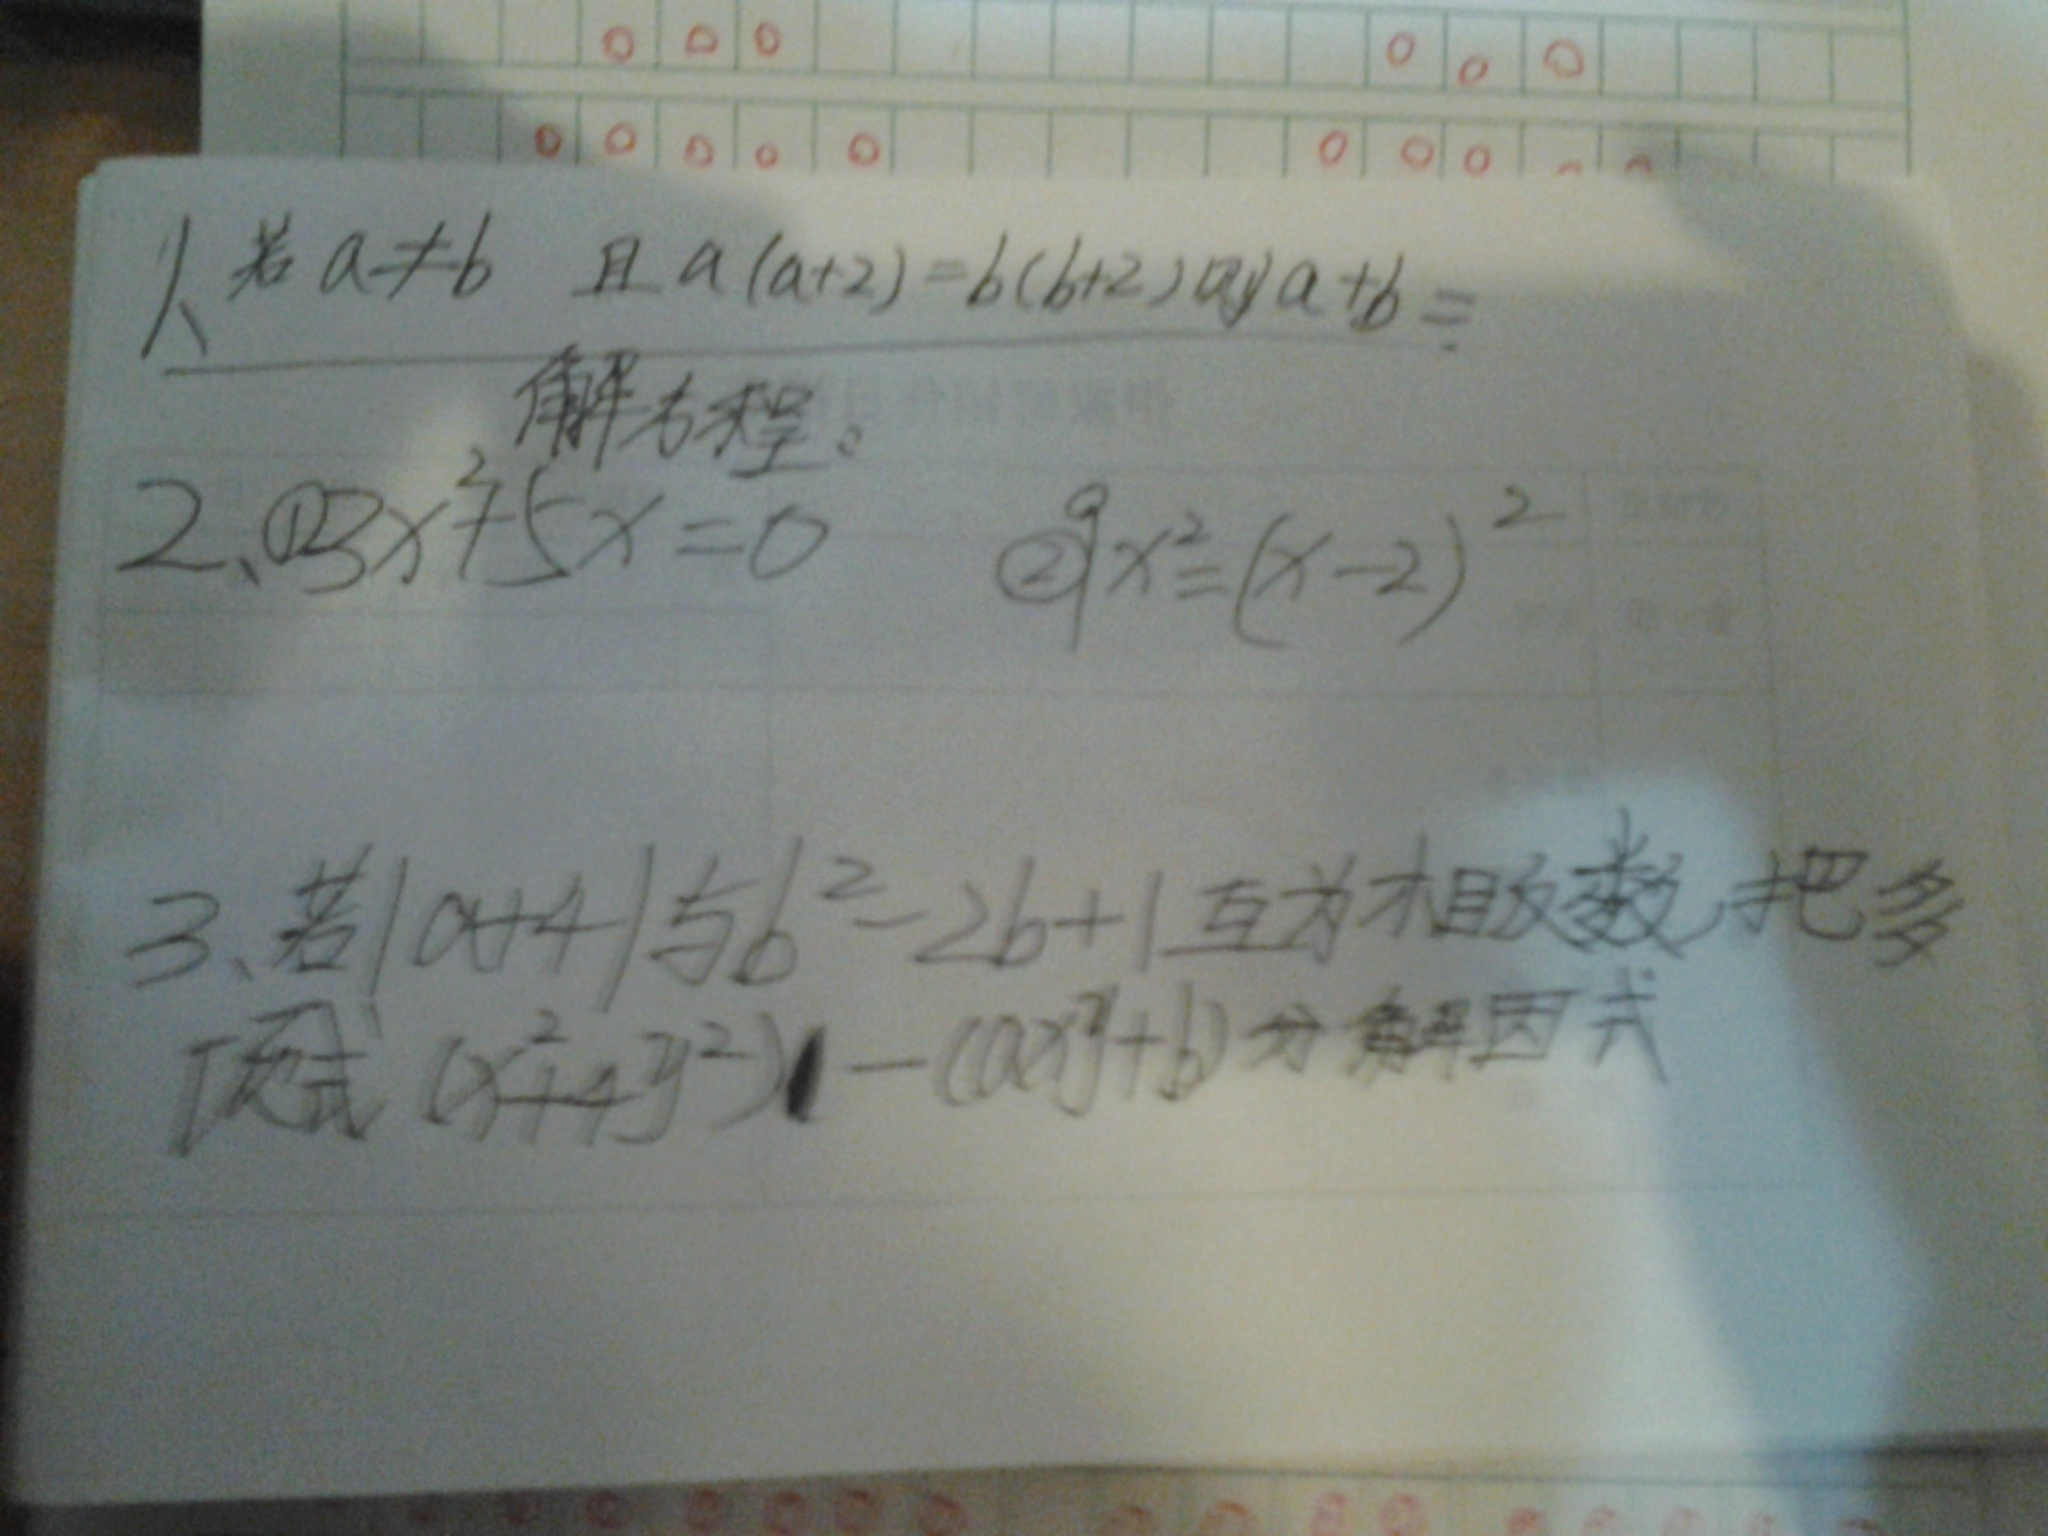 1、若a≠b 且a(a+2)=b(b+2)则a+b=
解方程:
2、①3x²+5x=0 ②9x²=(x-2)²
3、若|a+4|与b²-2b+1互为相反数,把多
项式(x²+4y²)-(axy+b)分解因式